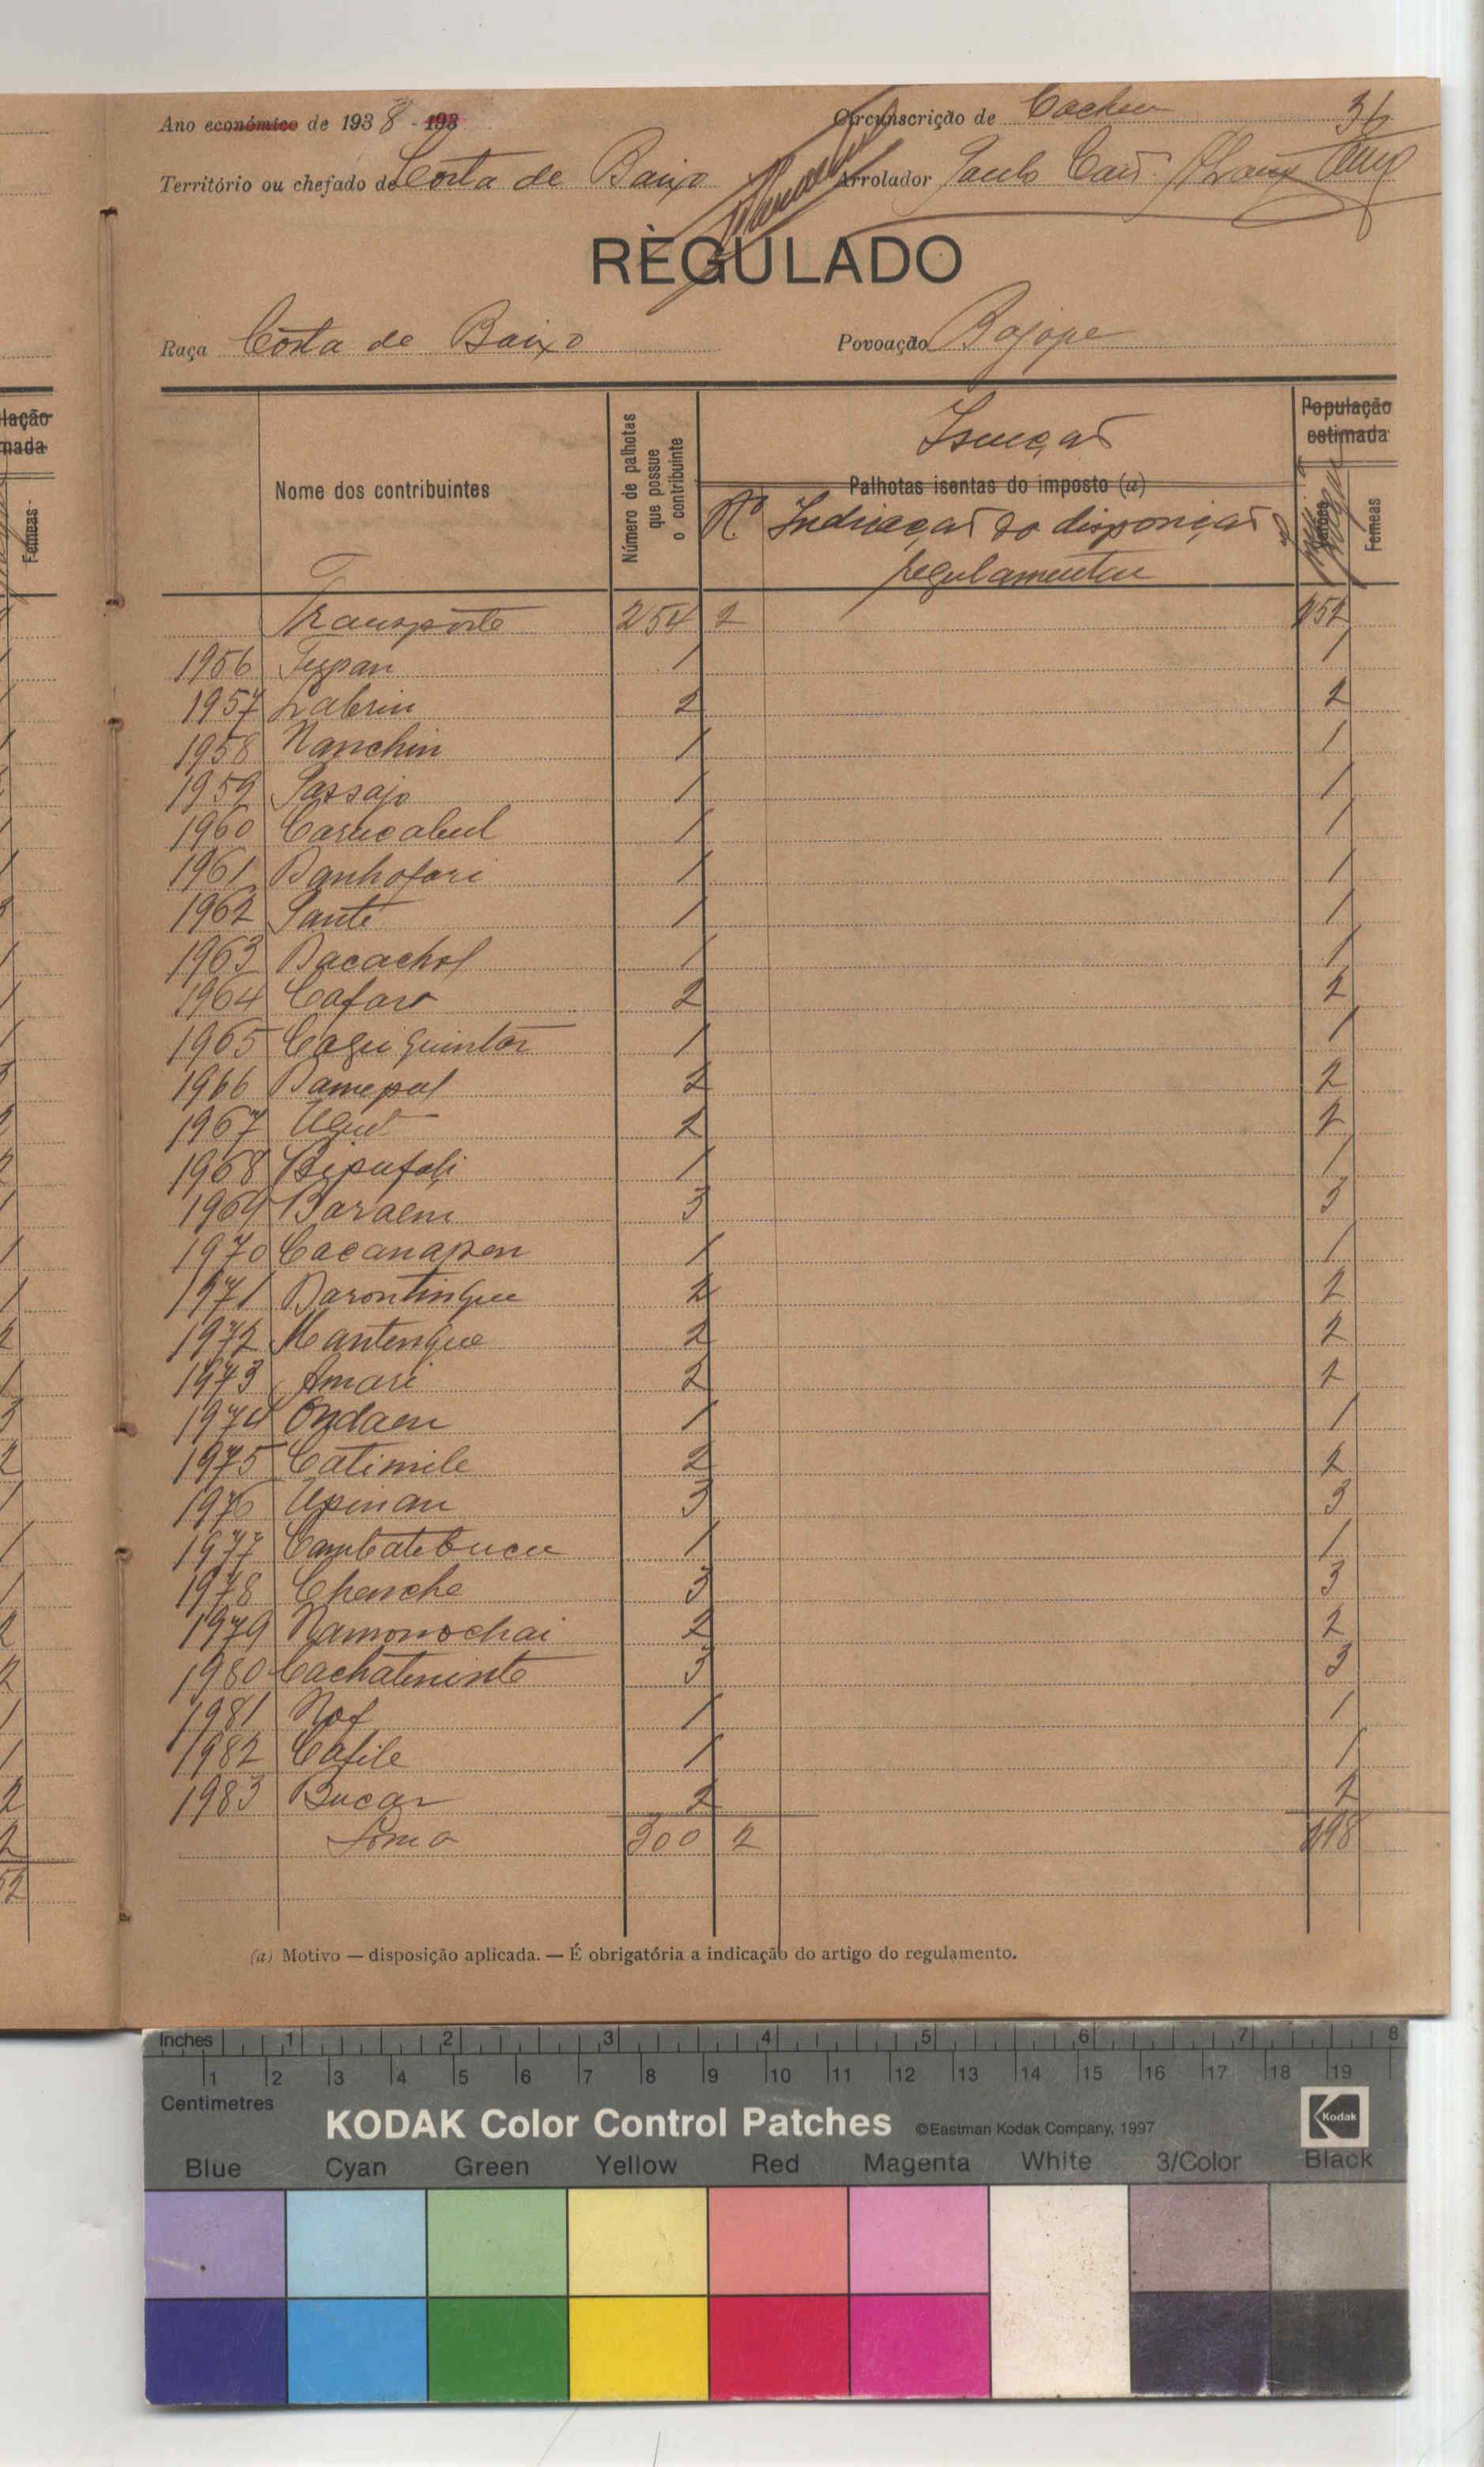 Ano económico de 1938 - 193
Circunscrição de Cacheu
Território ou chefado de Costa de Baixo
Arrolador Paulo
REGULADO
Raça Costa de Baixo
Povoação Bajope
Nome dos contribuintes
Número de palhotas que possue o contribuinte
Isenção
Palhotas isentas do imposto (a)
Nº Indicação do disposição regulamentar
População estimada
Femeas
Transporte 254 2 252
1956 1 1
1957 Labrin 2 2
1958 Nanchin 1 1
1959 Passajo 1 1
1960 Carucabul 1 1
1961 Banhofari 1 1
1962 Panté 1 1
1963 Bacachol 1 1
1964 Cafaro 2 2
1965 1 1
1966 Bamepal 2 2
1967 2 2
1968 Bipufali 1 1
1969 Baraem 3 3
1970 Cacanapen 1 1
1971 Barontingue 2 2
1972 Mantengue 2 2
1973 Amari 2 2
1974 Ondaen 1 1
1975 Catimile 2 2
1976 Upinau 3 3
1977 Cambatebucu 1 1
1978 Chenche 3 3
1979 Namonochai 2 2
1980 Cachateninte 3 3
1981 1 1
1982 Cafile 1 1
1983 Bucar 2 2
Soma 300 2 298
(a) Motivo — disposição aplicada. — É obrigatória a indicação do artigo do regulamento.
lação
mada
Femeas
Inches 1 2 3 4 5 6 7 8
1 2 3 4 5 6 7 8 9 10 11 12 13 14 15 16 17 18 19
Centimetres
KODAK Color Control Patches ©Eastman Kodak Company, 1997 Kodak
Blue Cyan Green Yellow Red Magenta White 3/Color Black